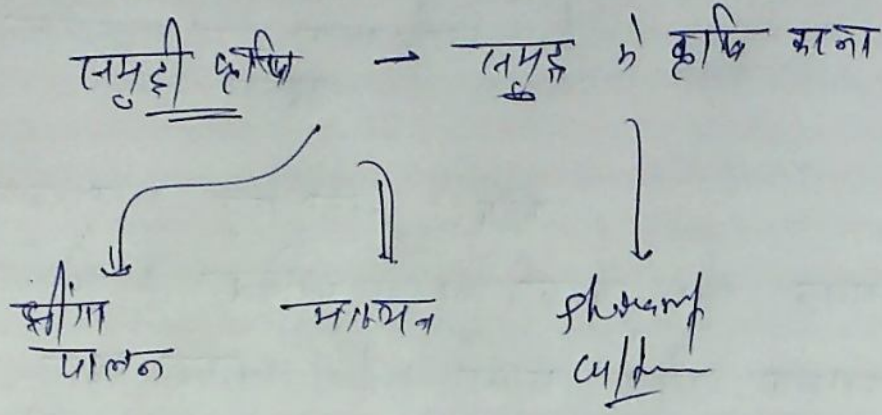 समुद्री कृषि → समुद्र मे कृषि करना
झींगा पालन
मत्स्यन
Shrimp Culture